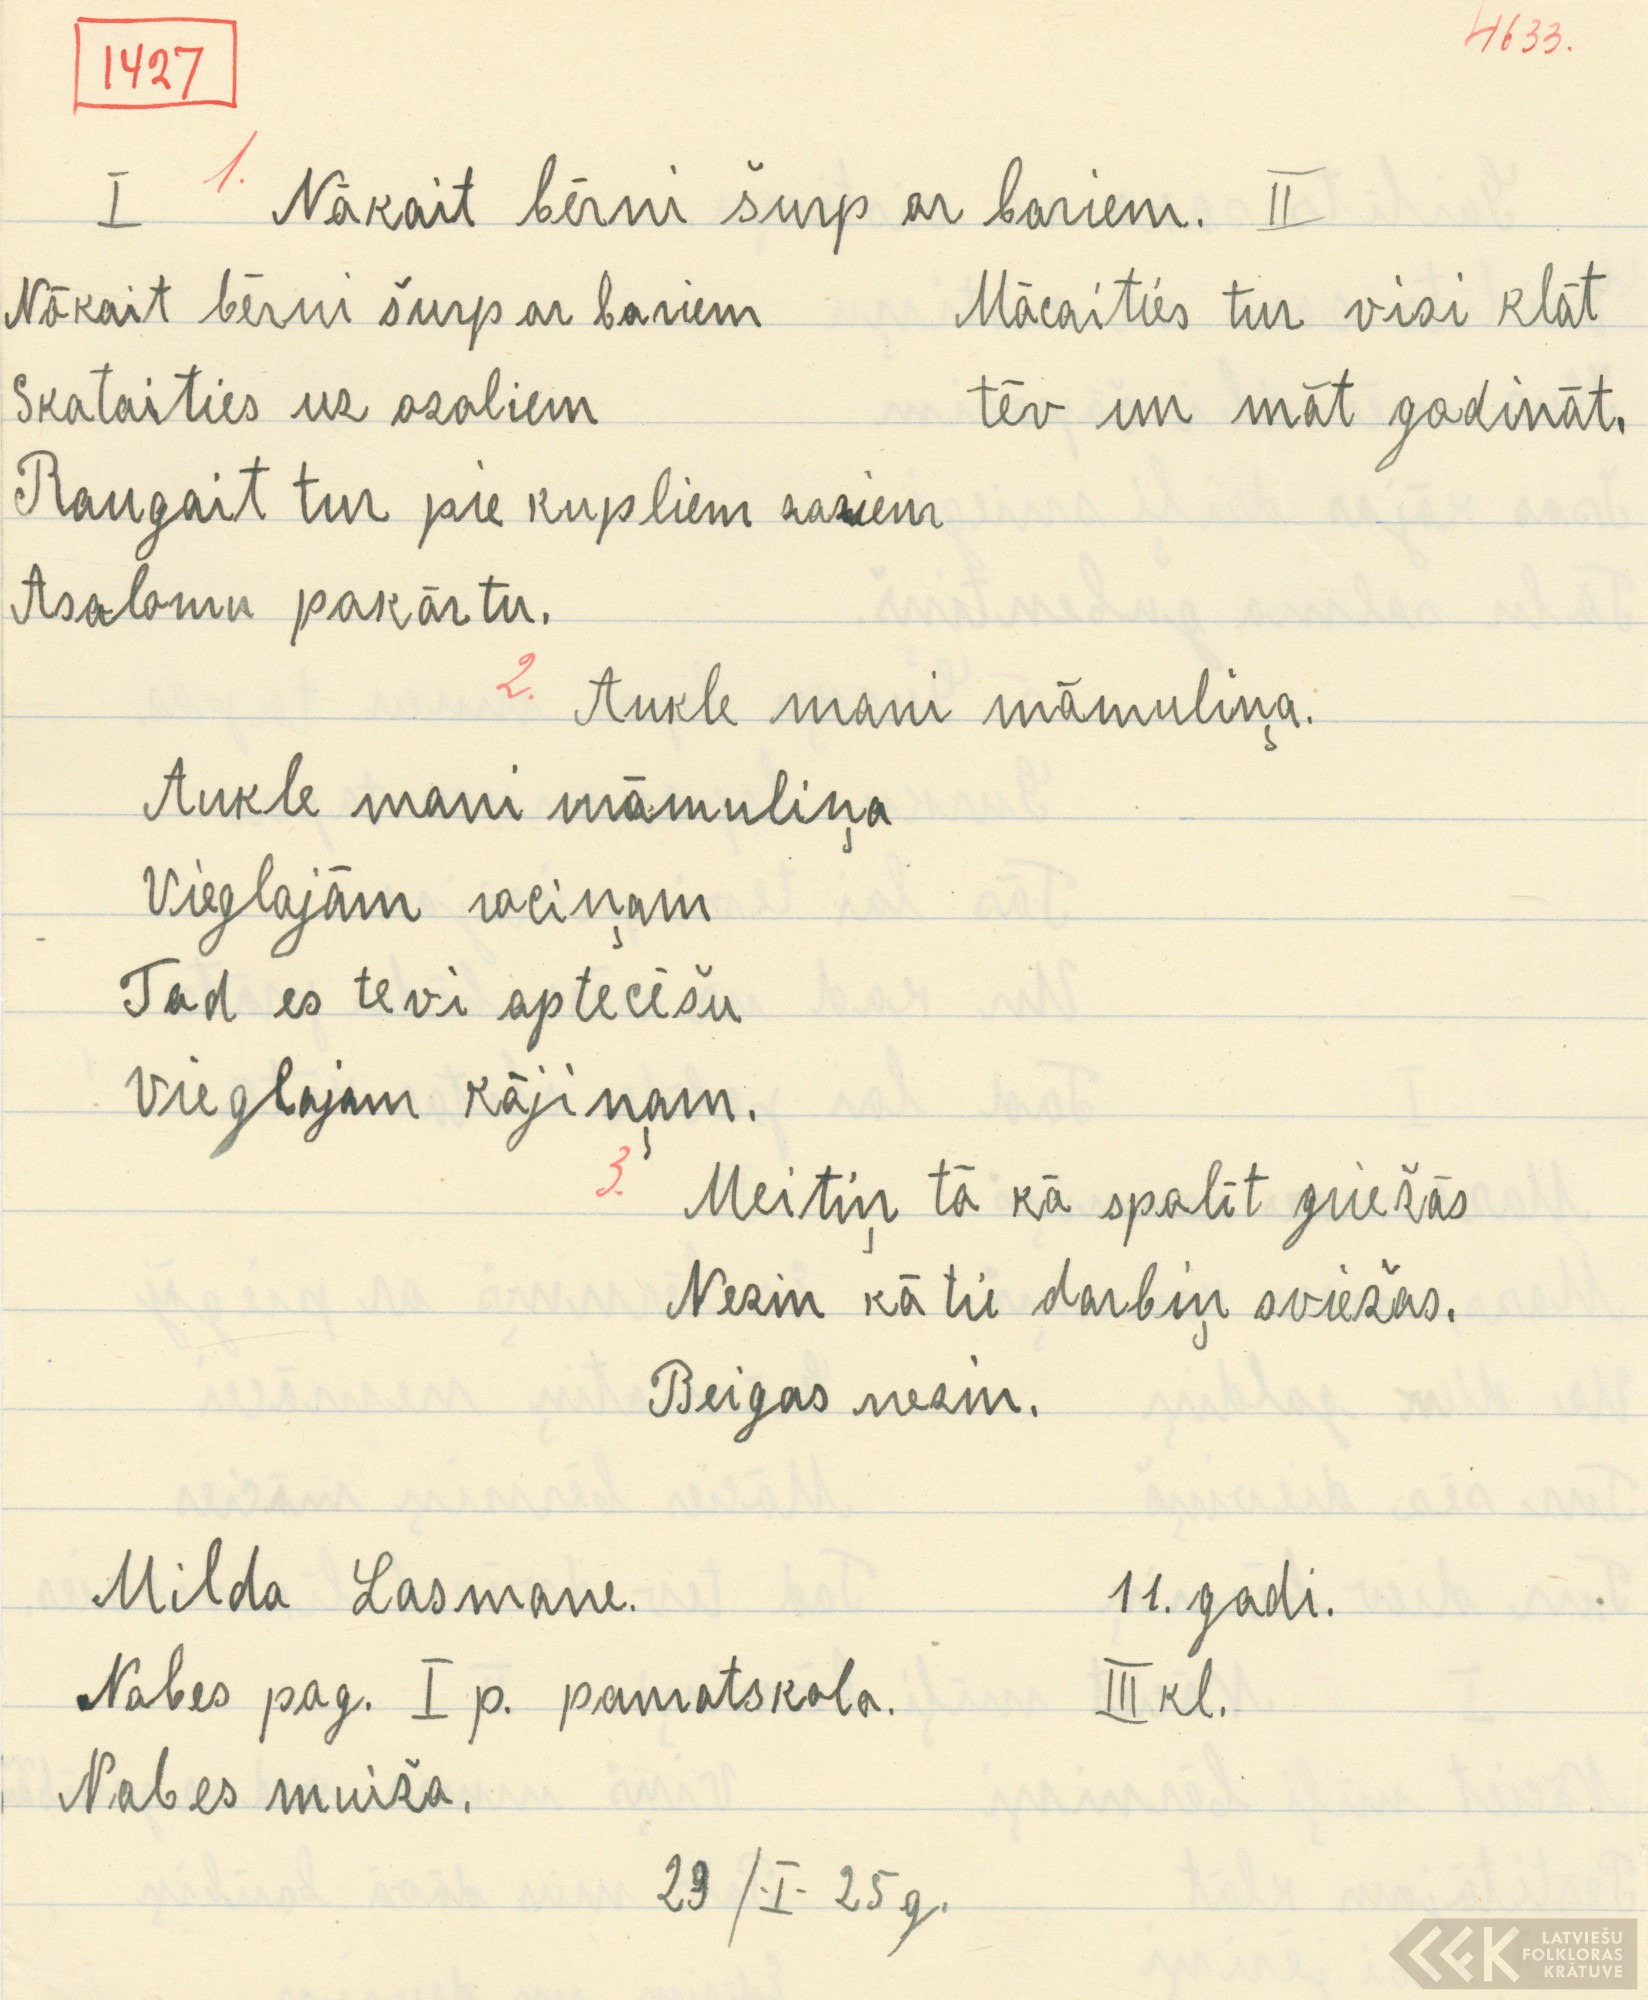 1427
4633.
I 1. Nākait bērni šurp ar bariem. II
Nākait bērni šurp ar bariem
Skataities uz ozoliem
Raugait tur pie kupliem zariem
Asalomu pakārtu.
Mācaities tur visi klāt
tēv un māt godināt.
2. Aukle mani māmuliņa.
Aukle mani māmuliņa
Vieglajām rociņam
Tad es tevi aptecēšu
Vieglajam kājiņam.
3. Meitiņ tā kā spalīt griežās
Nezin kā tii darbiņ sviežas.
Beigas nezin.
Milda Lasmane. 11. gadi.
Nabes pag. I p. pamatskola. III kl.
Nabes muiža.
29/·I· 25 g.
LATVIEŠU
FOLKLORAS
KRĀTUVE